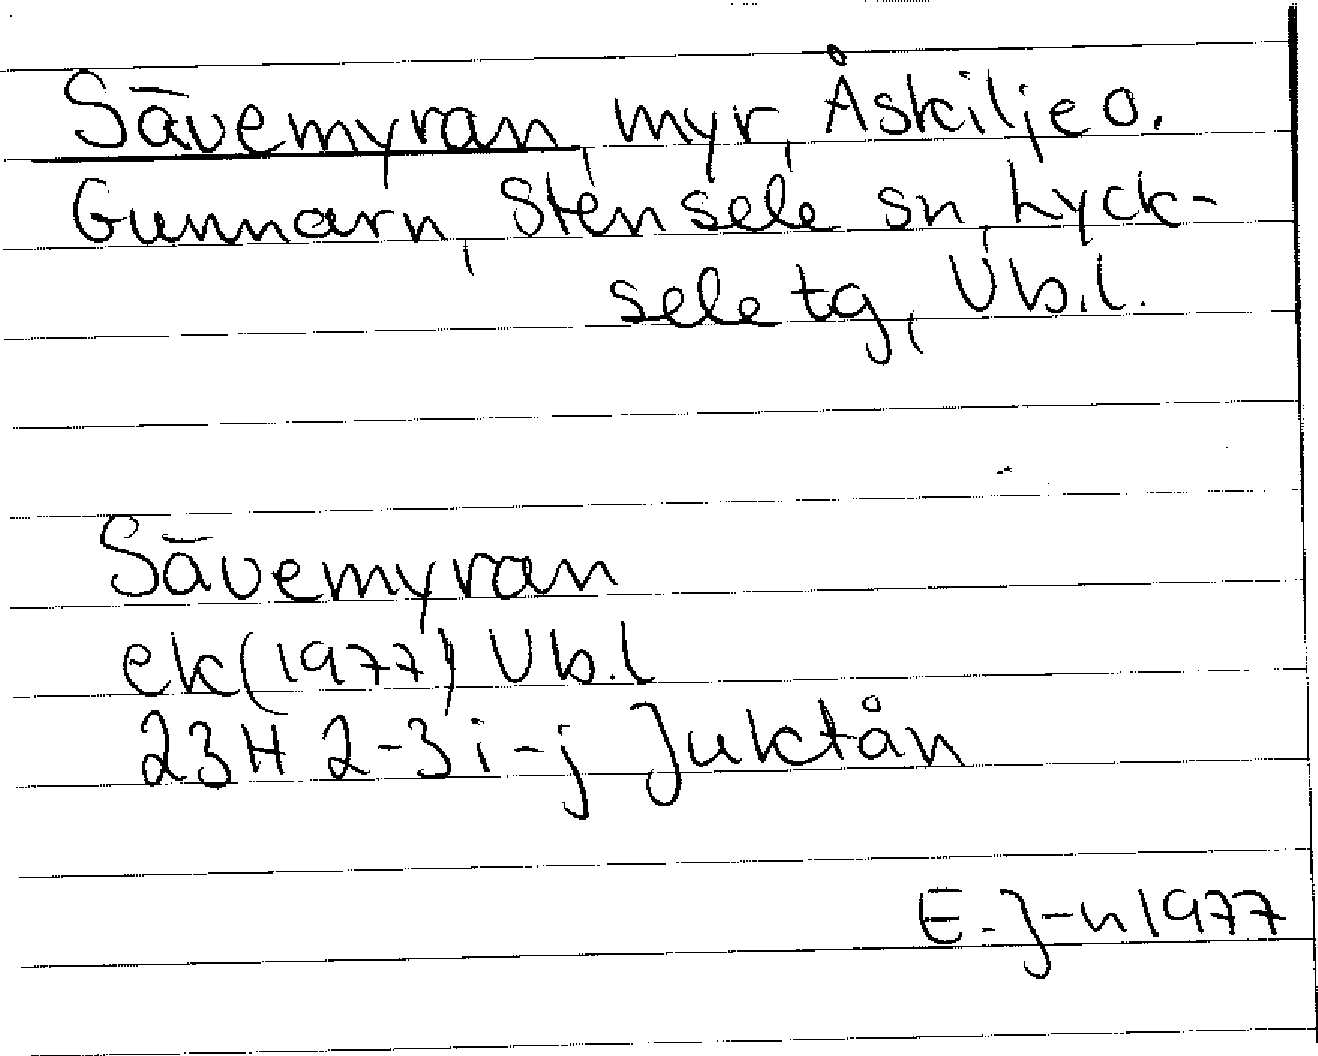 Sävemyran, myr, Åskilje o.
Gunnarn, Stensele sn, Lyck-
sele tg, Vb.l.
Sävemyran
ek(1977) Vb.l
23H 2-3 i-j Juktån
E. J-n 1977